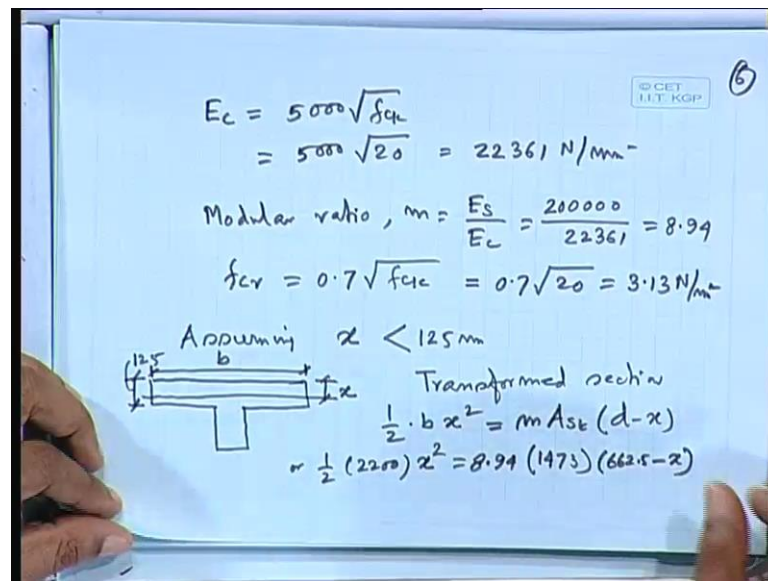 6
© CET
I.I.T. KGP
Ec = 5000√fck
= 5000 √20 = 22361 N/mm²
Modular ratio, m = Es/Ec = 200000/22361 = 8.94
fcr = 0.7√fck = 0.7√20 = 3.13 N/mm²
Assuming x < 125 mm
125 b x
Transformed section
1/2 · b x² = m Ast (d-x)
or 1/2 (2200) x² = 8.94 (1473) (662.5-x)